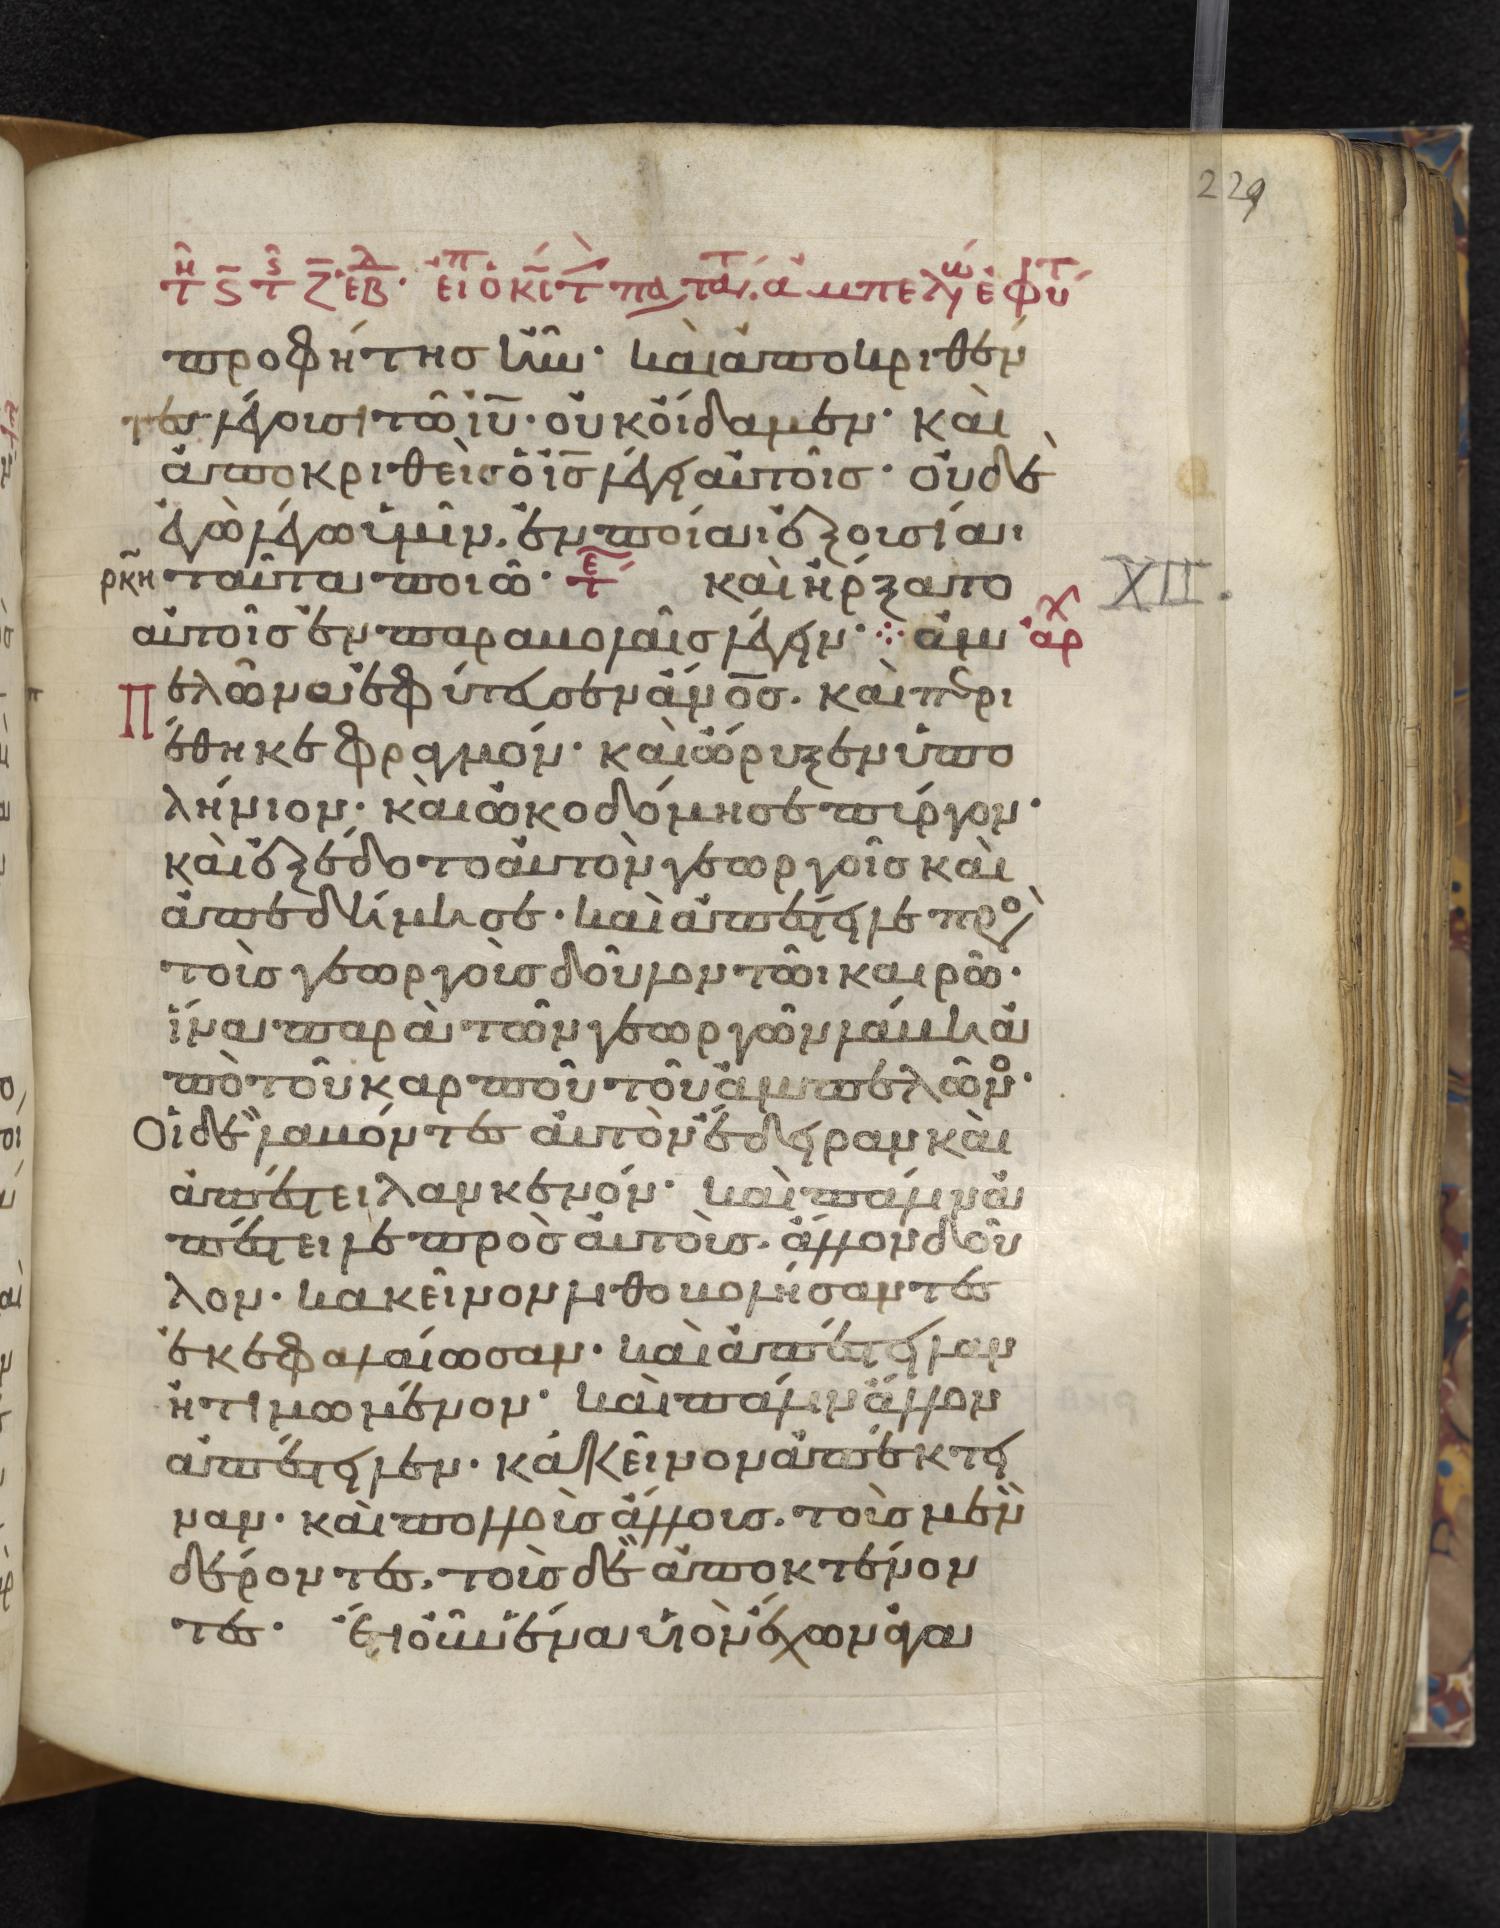 229
προφήτης ἦν· καὶ ἀποκριθέν
τες λέγουσι τῶ ιυ· οὐκ οἴδαμεν· καὶ
ἀποκριθεὶς ὁ ις λέγει αὐτοῖς· οὐδὲ
ἐγὼ λέγω ὑμῖν. ἐν ποία ἐξουσία
ρκη ταῦτα ποιῶ· καὶ ἤρξατο XII.
αὐτοῖς ἐν παραβολαῖς λέγειν· ἀμ αρχ
πελῶνα ἐφύτευσεν ἄνος. καὶ περι
έθηκε φραγμόν· καὶ ὤρυξεν ὑπο
λήνιον· καὶ ὠκοδόμησε πύργον·
καὶ ἐξέδοτο αὐτὸν γεωργοῖς καὶ
ἀπεδήμησε· καὶ ἀπέστειλε πρὸ
τοὺς γεωργοὺς δοῦλον τῶι καιρῶ·
ἵνα παρὰ τῶν γεωργῶν λάβη ἀ
πὸ τοῦ καρποῦ τοῦ ἀμπελῶνο·
Οἱ δὲ λαβόντες αὐτὸν ἔδειραν καὶ
ἀπέστειλαν κενόν· καὶ πάλιν ἀ
πέστειλε πρὸς αὐτοὺς. ἄλλον δοῦ
λον· κακεῖνον λιθοβολήσαντες
ἐκεφαλαίωσαν· καὶ ἀπέστειλαν
ἠτιμωμένον· καὶ πάλιν ἄλλον
ἀπέστειλεν· κἀκεῖνον ἀπέκτει
ναν· καὶ πολλοὺς ἄλλους. τοὺς μὲν
δέροντες. τοὺς δὲ ἀποκτένον
τες· Ἔτι οὖν ἕνα υἱὸν ἔχων ἀγα